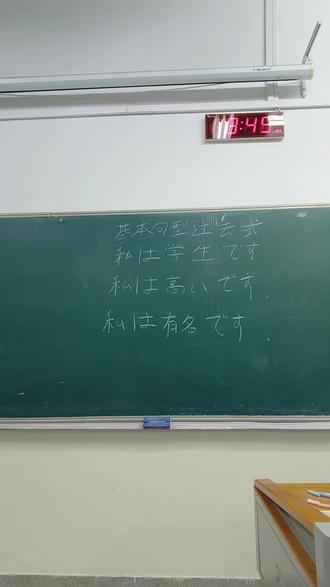 8:45
基本句型过去式
私は学生です
私は高いです.
私は有名です.